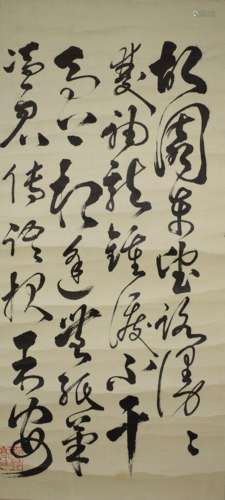 故園東望路漫〻
雙袖龍鍾淚不干
馬上相逢無紙筆
憑君傳語報平安